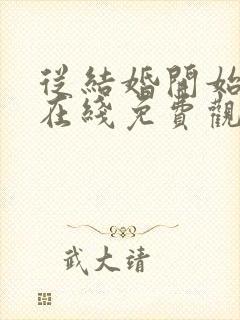 從結婚開始
在綫免費觀
武大靖